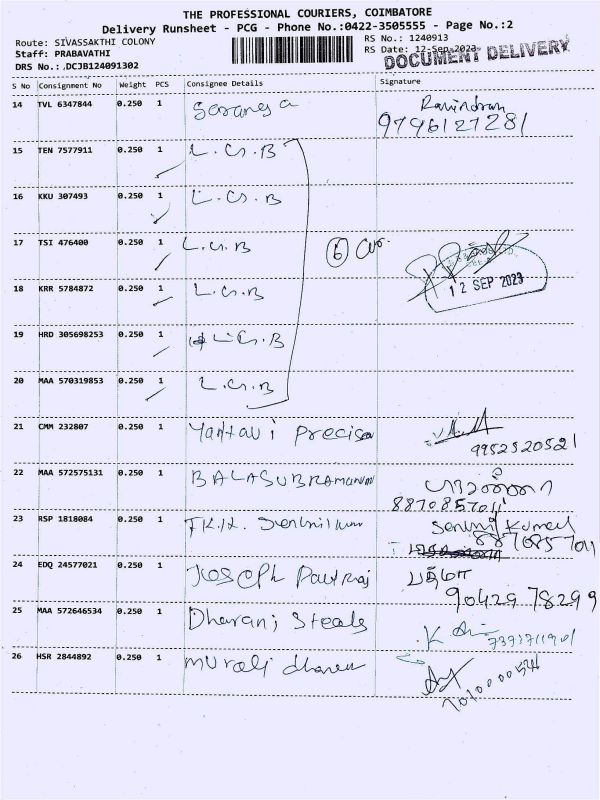 THE PROFESSIONAL COURIERS, COIMBATORE
Delivery Runsheet - PCG - Phone No.:0422-3505555 - Page No.:2
Route: SIVASSAKTHI COLONY
RS No.: 1240913
Staff: PRABAVATHI
RS Date: 12-Sep-2023
DRS No.: DCJB124091302
DOCUMENT DELIVERY
S No Consignment No Weight PCS Consignee Details Signature
14 TVL 6347844 0.250 1 Ravindran
9796127281
15 TEN 7577911 0.250 1 L.G.B
16 KKU 307493 0.250 1 L.G.B
17 TSI 476400 0.250 1 L.G.B 6
18 KRR 5784872 0.250 1 L.G.B 12 SEP 2023
19 HRD 305698253 0.250 1 L.G.B
20 MAA 570319853 0.250 1 L.G.B
21 CMM 232807 0.250 1 Precision
9952520521
22 MAA 572575131 0.250 1 BALASUBRAMANIAM
8870857011
23 RSP 1818084 0.250 1 Senthil Kumar
8870857011
24 EDQ 24577021 0.250 1 Joseph Paulraj பத்மா
90429 78299
25 MAA 572646534 0.250 1 Dharani Steels
26 HSR 2844892 0.250 1 Murali dharan